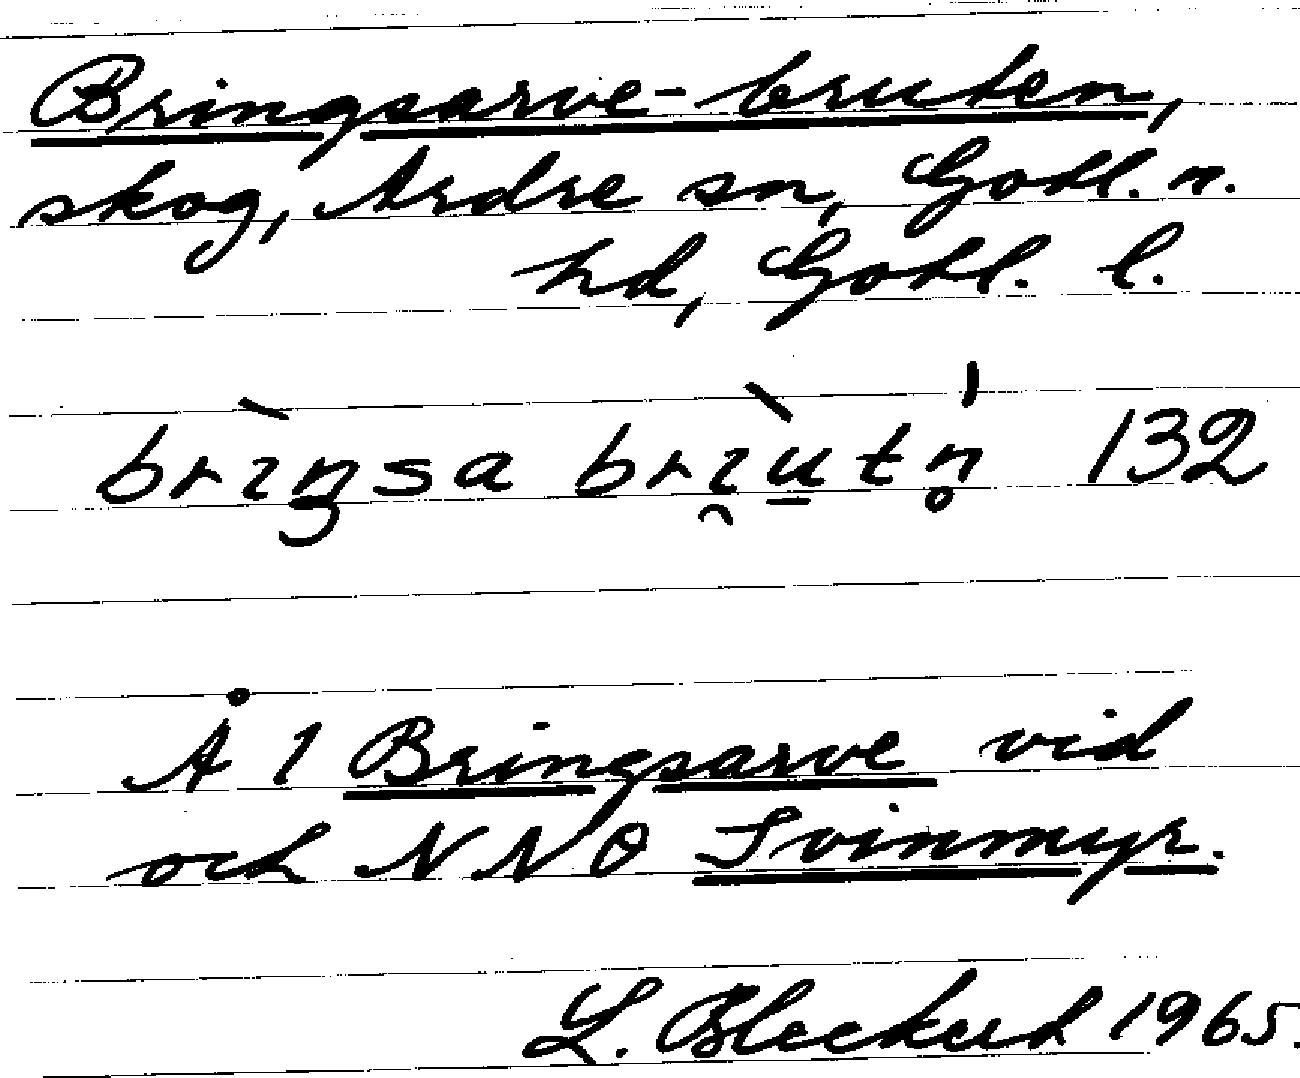 Bringsarve-bruten,
skog, Ardre sn, Gotl. n.
hd, Gotl. l.
brı̀ŋsa brı̯ùtn̥ 132
Å 1 Bringsarve vid
och NNO Svinmyr.
L. Bleckert 1965.